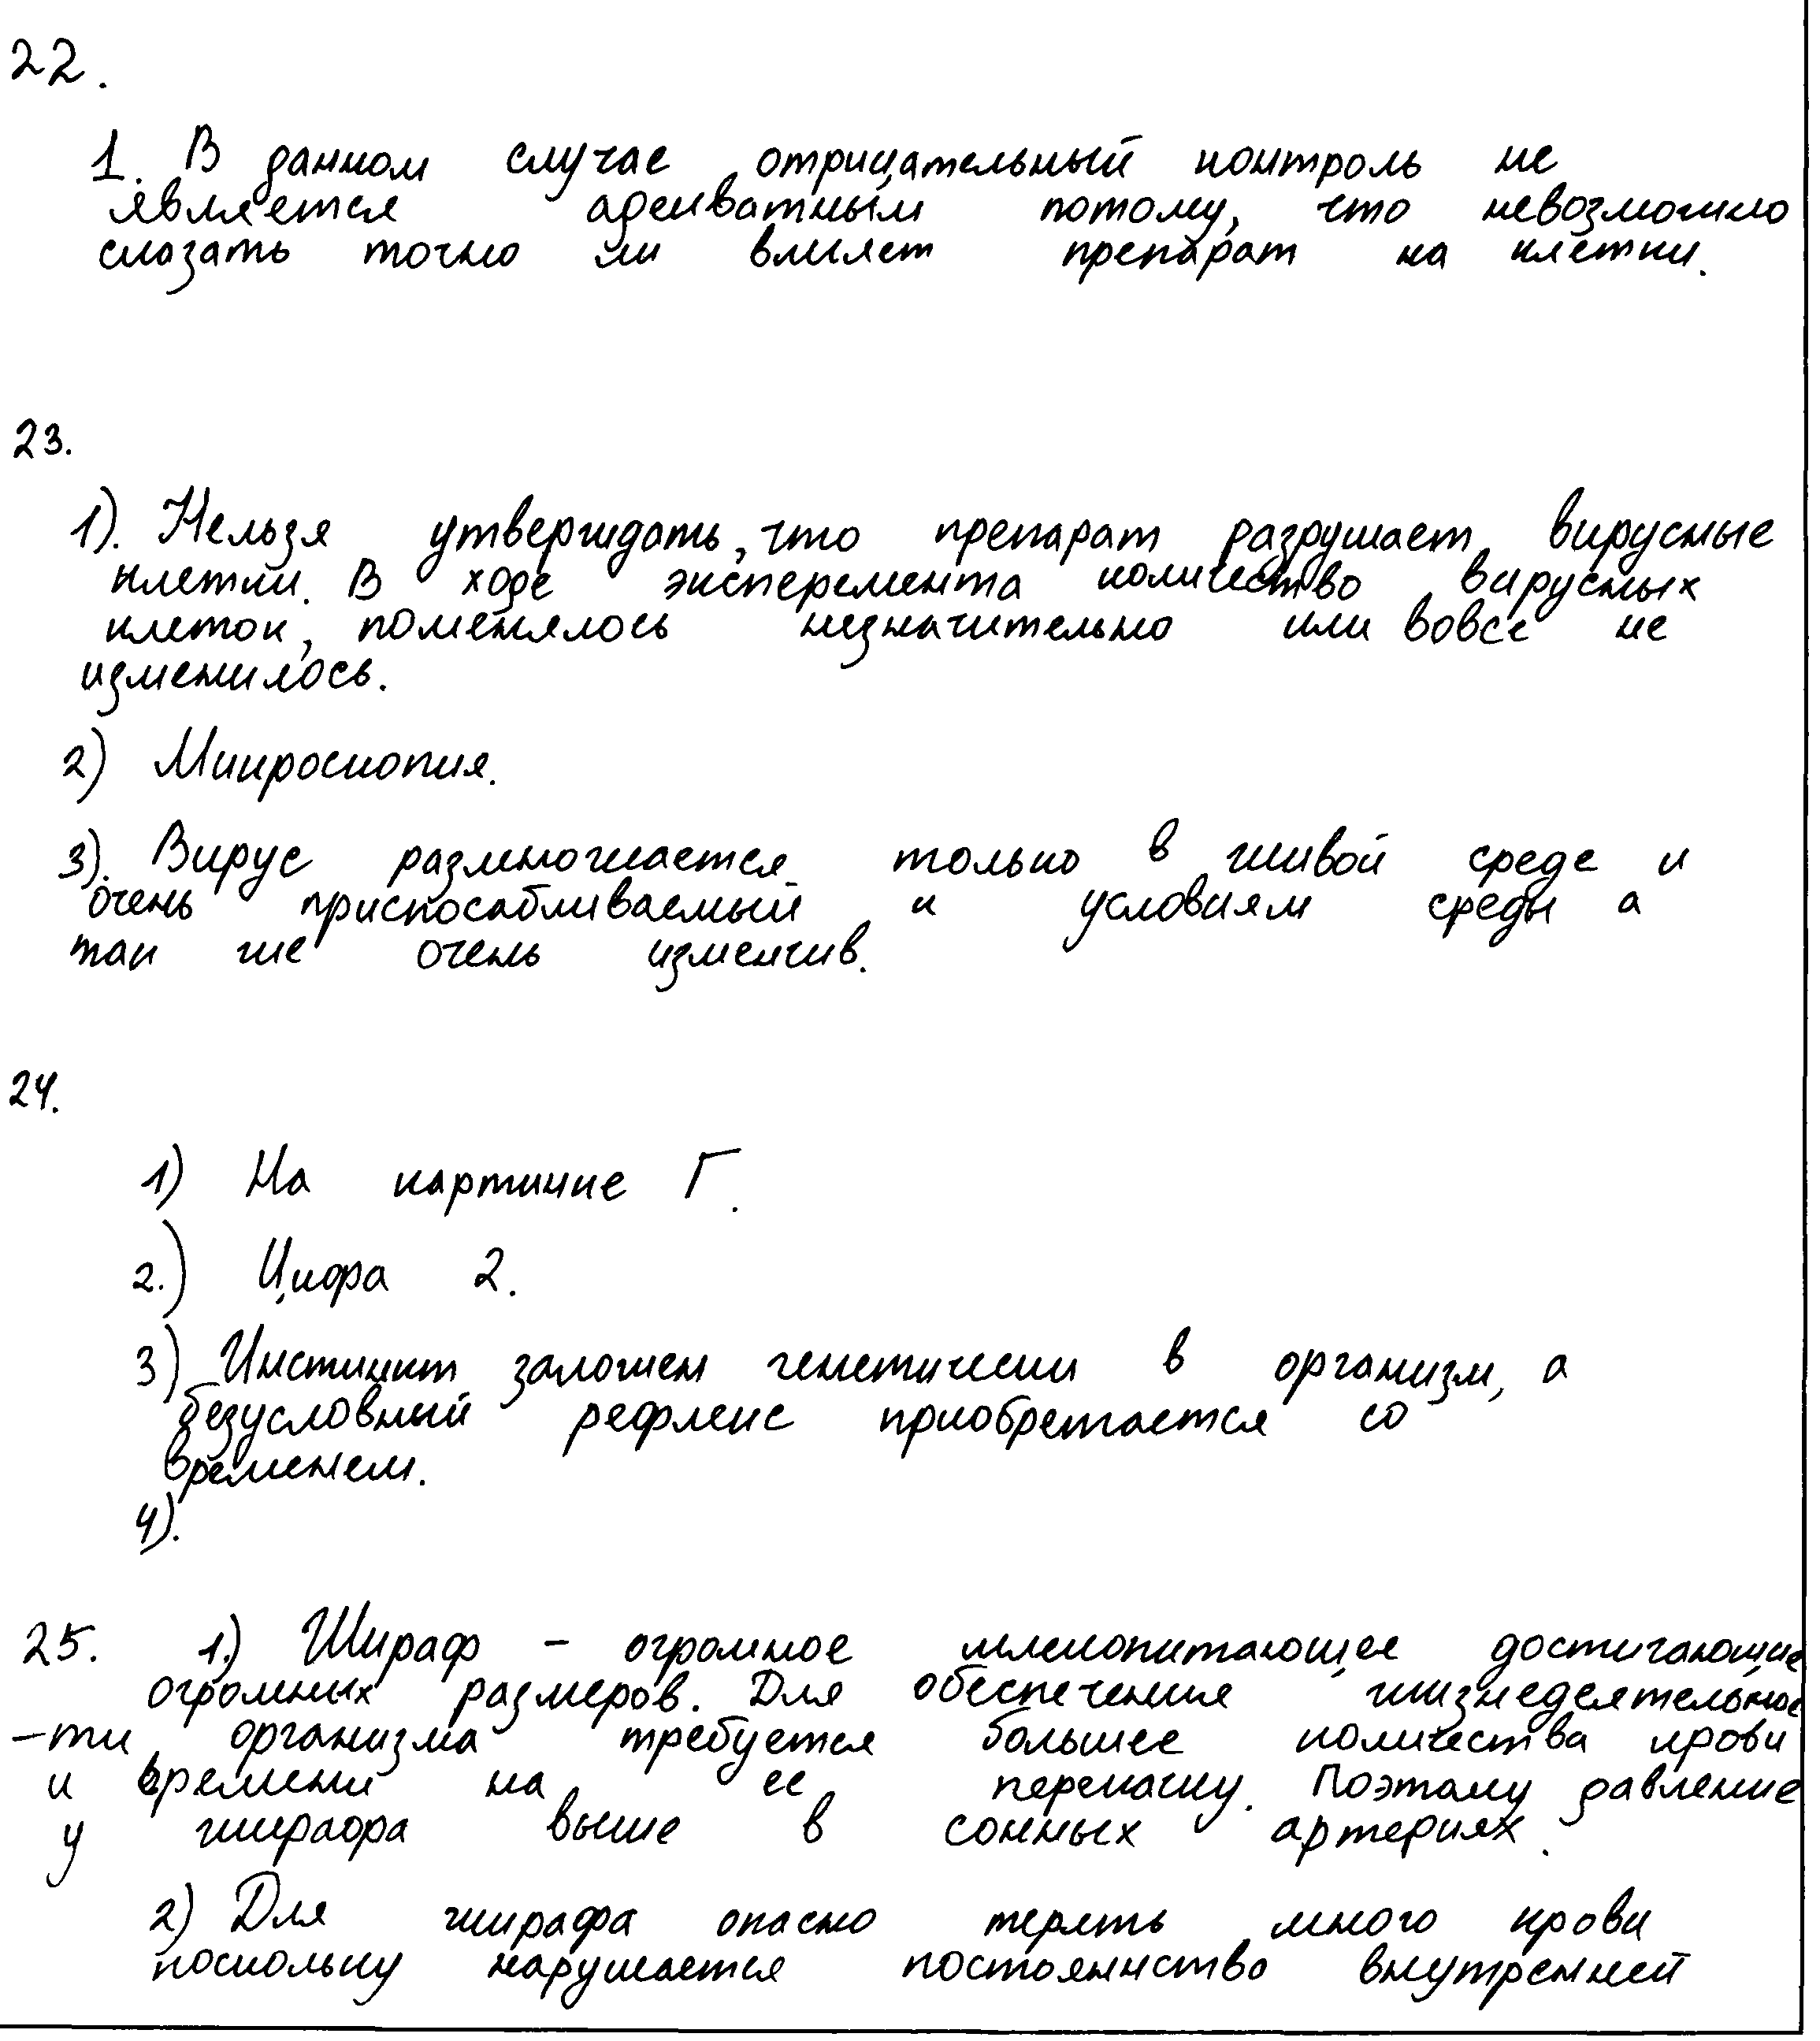 22.
1. В данном случае отрицательный контроль не
является адекватным потому, что невозможно
сказать точно ли влияет препарат на клетки.
23.
1). Нельзя утверждать, что препарат разрушает вирусные
клетки. В ходе эксперемента количество вирусных
клеток, поменялось незначительно или вовсе не
изменилось.
2) Микроскопия.
3). Вирус размножается только в живой среде и
очень приспосабливаемый к условиям среды а
так же очень изменчив.
24.
1) На картинке Г.
2.) Цифра 2.
3) Инстинкт заложен генетически в организм, а
безусловный рефлекс приобретается со
временем.
4).
25. 1.) Жираф - огромное млекопитающее достигающие
огромных размеров. Для обеспечения жизнедеятельнос
-ти организма требуется большее количества крови
и времени на ее перекачку. Поэтому давление
у жирафа выше в сонных артериях.
2) Для жирафа опасно терять много крови
поскольку нарушается постоянство внутренней